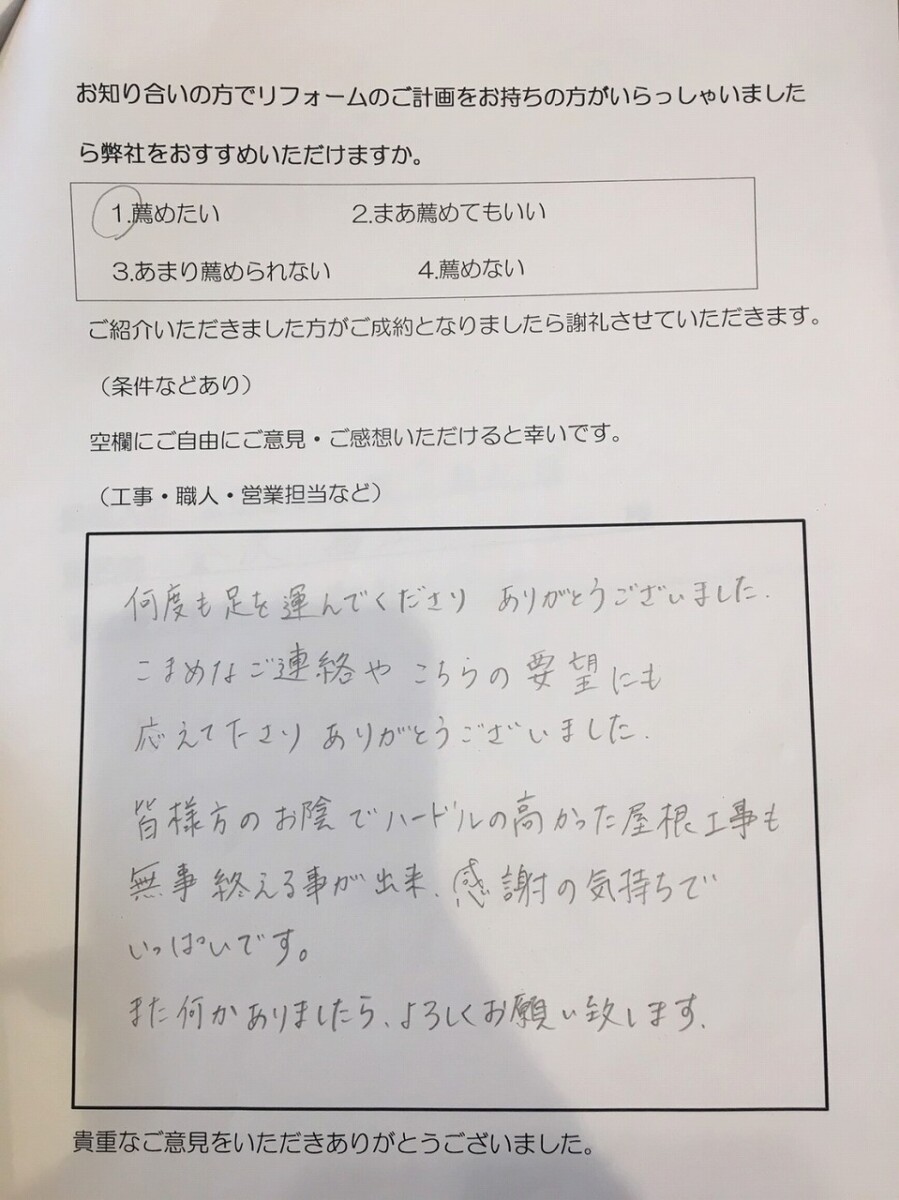 お知り合いの方でリフォームのご計画をお持ちの方がいらっしゃいました
ら弊社をおすすめいただけますか。
1.薦めたい 2.まあ薦めてもいい
3.あまり薦められない 4.薦めない
ご紹介いただきました方がご成約となりましたら謝礼させていただきます。
（条件などあり）
空欄にご自由にご意見・ご感想いただけると幸いです。
（工事・職人・営業担当など）
何度も足を運んでくださり ありがとうございました.
こまめなご連絡や こちらの要望にも
応えて下さり ありがとうございました.
皆様方のお陰でハードルの高かった屋根工事も
無事終える事が出来、感謝の気持ちで
いっぱいです。
また何かありましたら、よろしくお願い致します.
貴重なご意見をいただきありがとうございました。